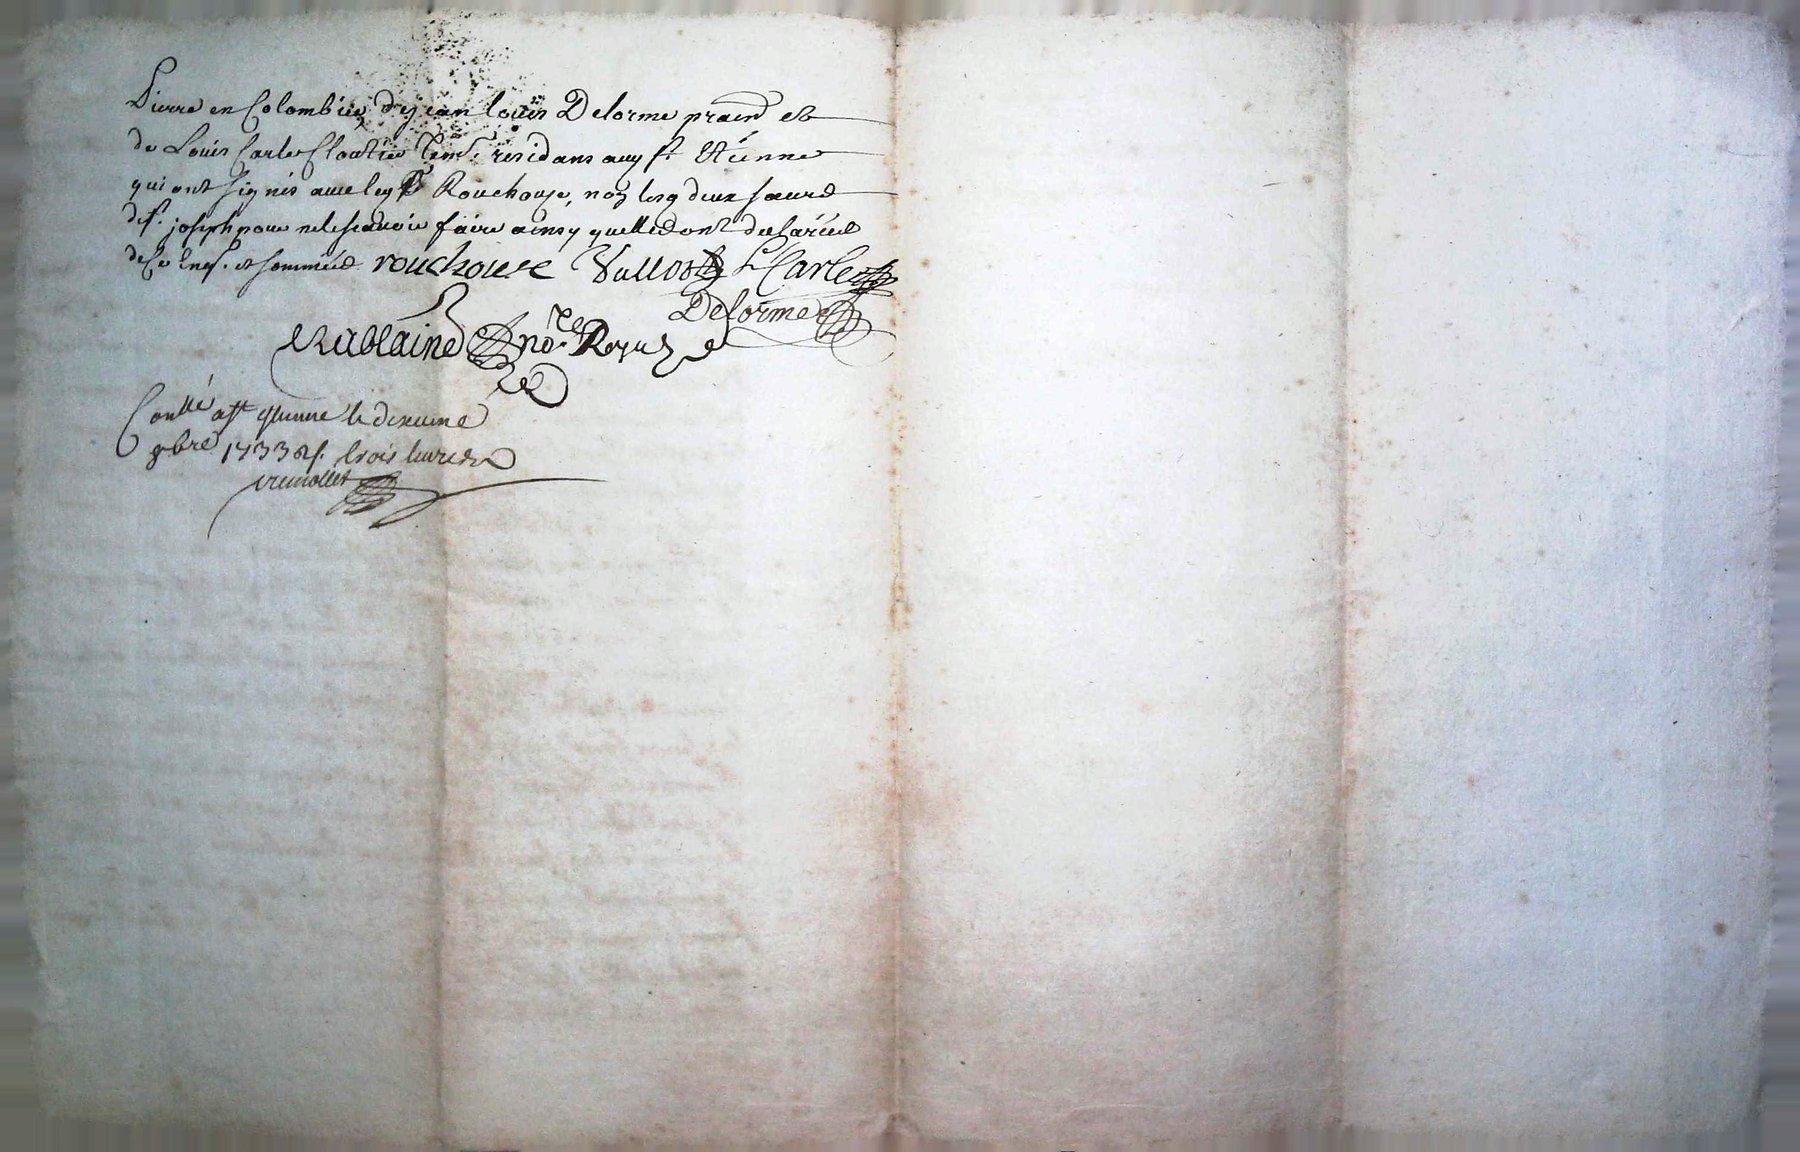 Pierre en Colombier, de jean louis Delorme prain et
de Louis Carles Cloutier temo. residans auy st. Etienne
qui ont signés avec ley Sr Rouchouse, non lesq deux saurd
de st. joseph pour ne le scavoir faire ainsy quelle dont desclairé
de ce enq. et sommée rouchouse Vallot L Carles
Delorme
Rablaine no.re Royal
Conllé a st estienne le dixieme
9bre 1733 R. trois livres
vremollet